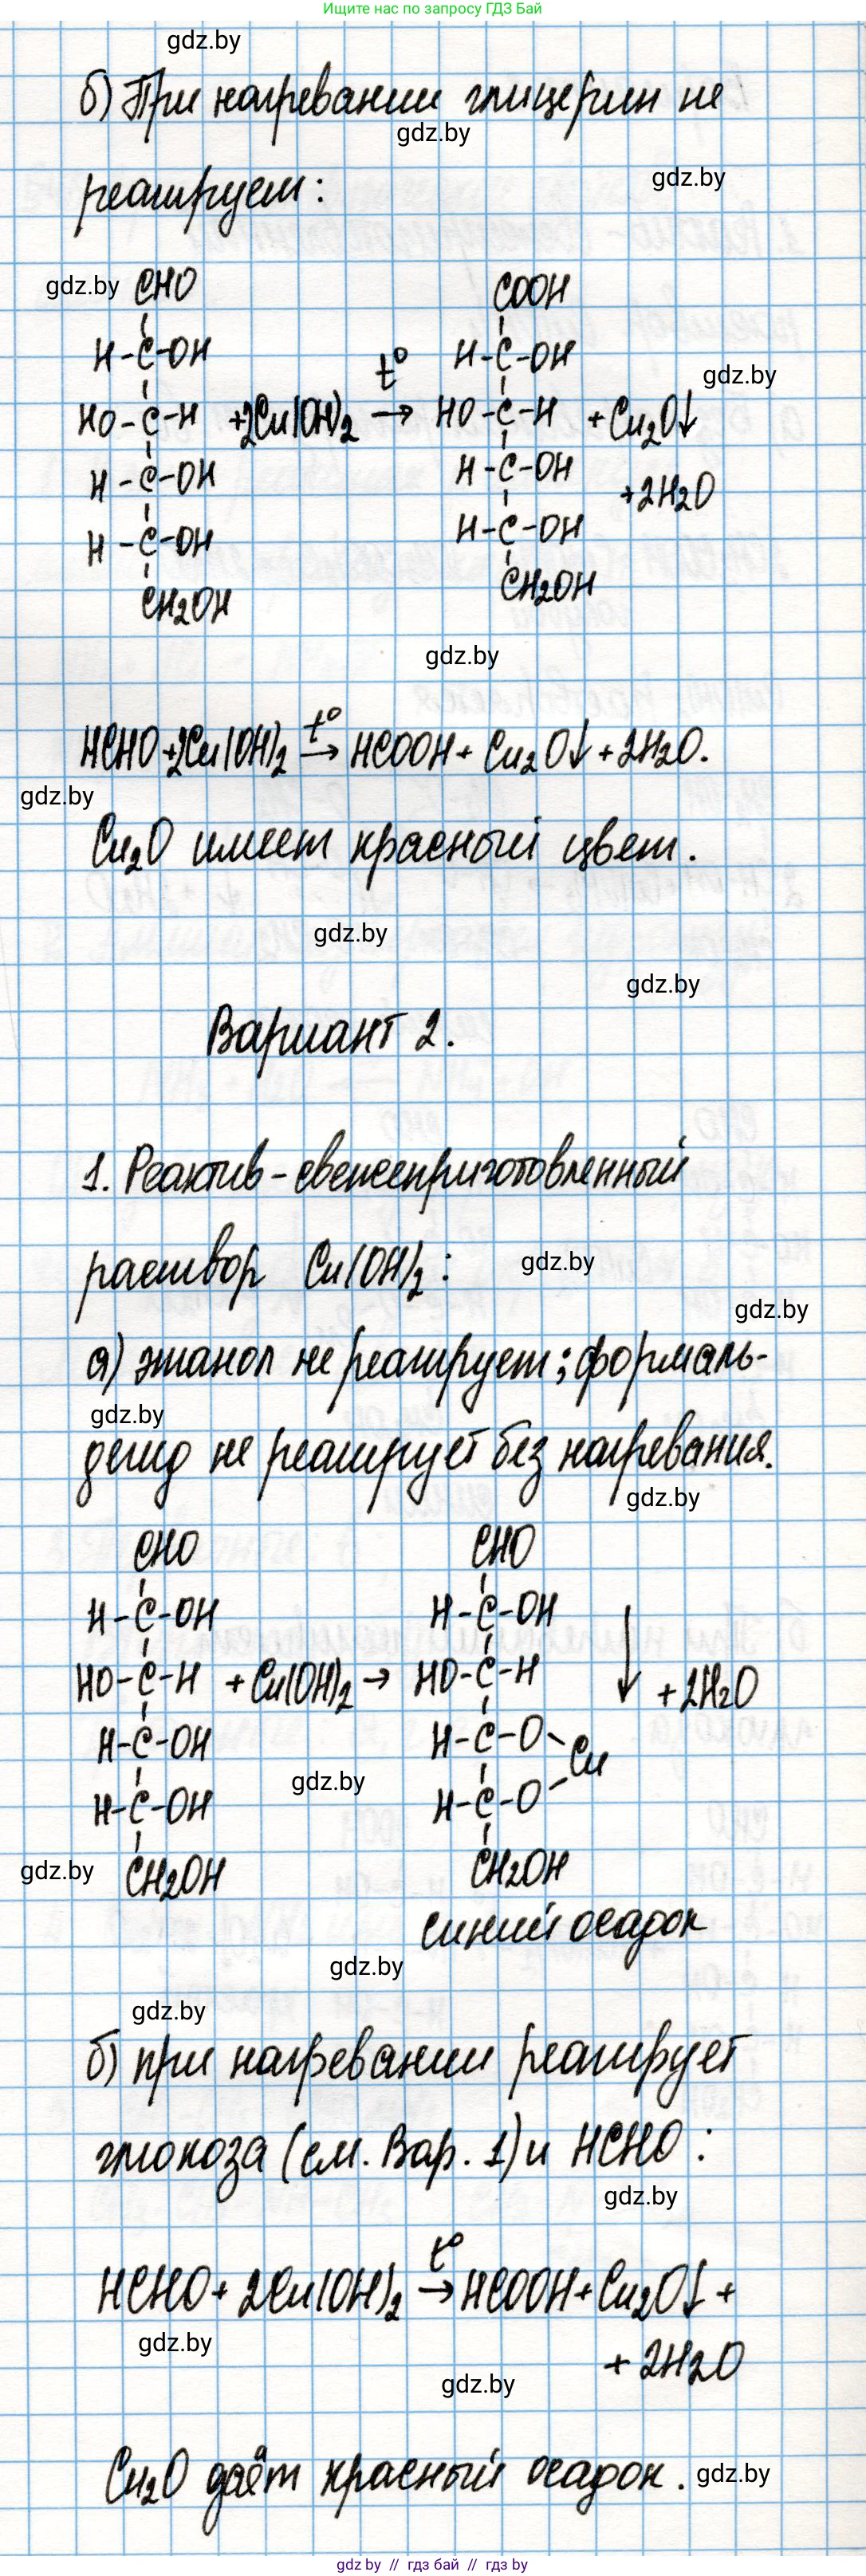 Ищите нас по запросу ГДЗ Бай
gdz.by
б) При нагревании глицерин не
gdz.by
gdz.by
реагирует:
gdz.by
CHO COOH
H-C-OH t° H-C-OH
gdz.by
HO-C-H +2Cu(OH)2 → HO-C-H + Cu2O↓
H-C-OH H-C-OH +2H2O
H-C-OH H-C-OH
CH2OH CH2OH
gdz.by
HCHO+2Cu(OH)2 t° → HCOOH + Cu2O↓ + 2H2O.
gdz.by
Cu2O имеет красный цвет.
gdz.by
gdz.by
Вариант 2.
1. Реактив - свежеприготовленный
раствор Cu(OH)2:
gdz.by
gdz.by
а) этанол не реагирует; формаль-
gdz.by
дегид не реагирует без нагревания.
gdz.by
CHO CHO
H-C-OH H-C-OH
HO-C-H + Cu(OH)2 → HO-C-H ↓ + 2H2O
H-C-OH H-C-O
Cu
gdz.by
H-C-OH H-C-O
gdz.by
CH2OH CH2OH
синий осадок
gdz.by
gdz.by
б) при нагревании реагирует
глюкоза (см. Вар. 1) и HCHO:
gdz.by
HCHO + 2Cu(OH)2 t° → HCOOH + Cu2O↓ +
gdz.by
+ 2H2O
gdz.by
Cu2O даёт красный осадок.
gdz.by
gdz by // гдз бай // гдз by